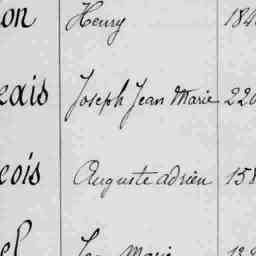 on Henry 184
eais Joseph Jean Marie 220
eois Auguste adrien 158
el Jean Marie